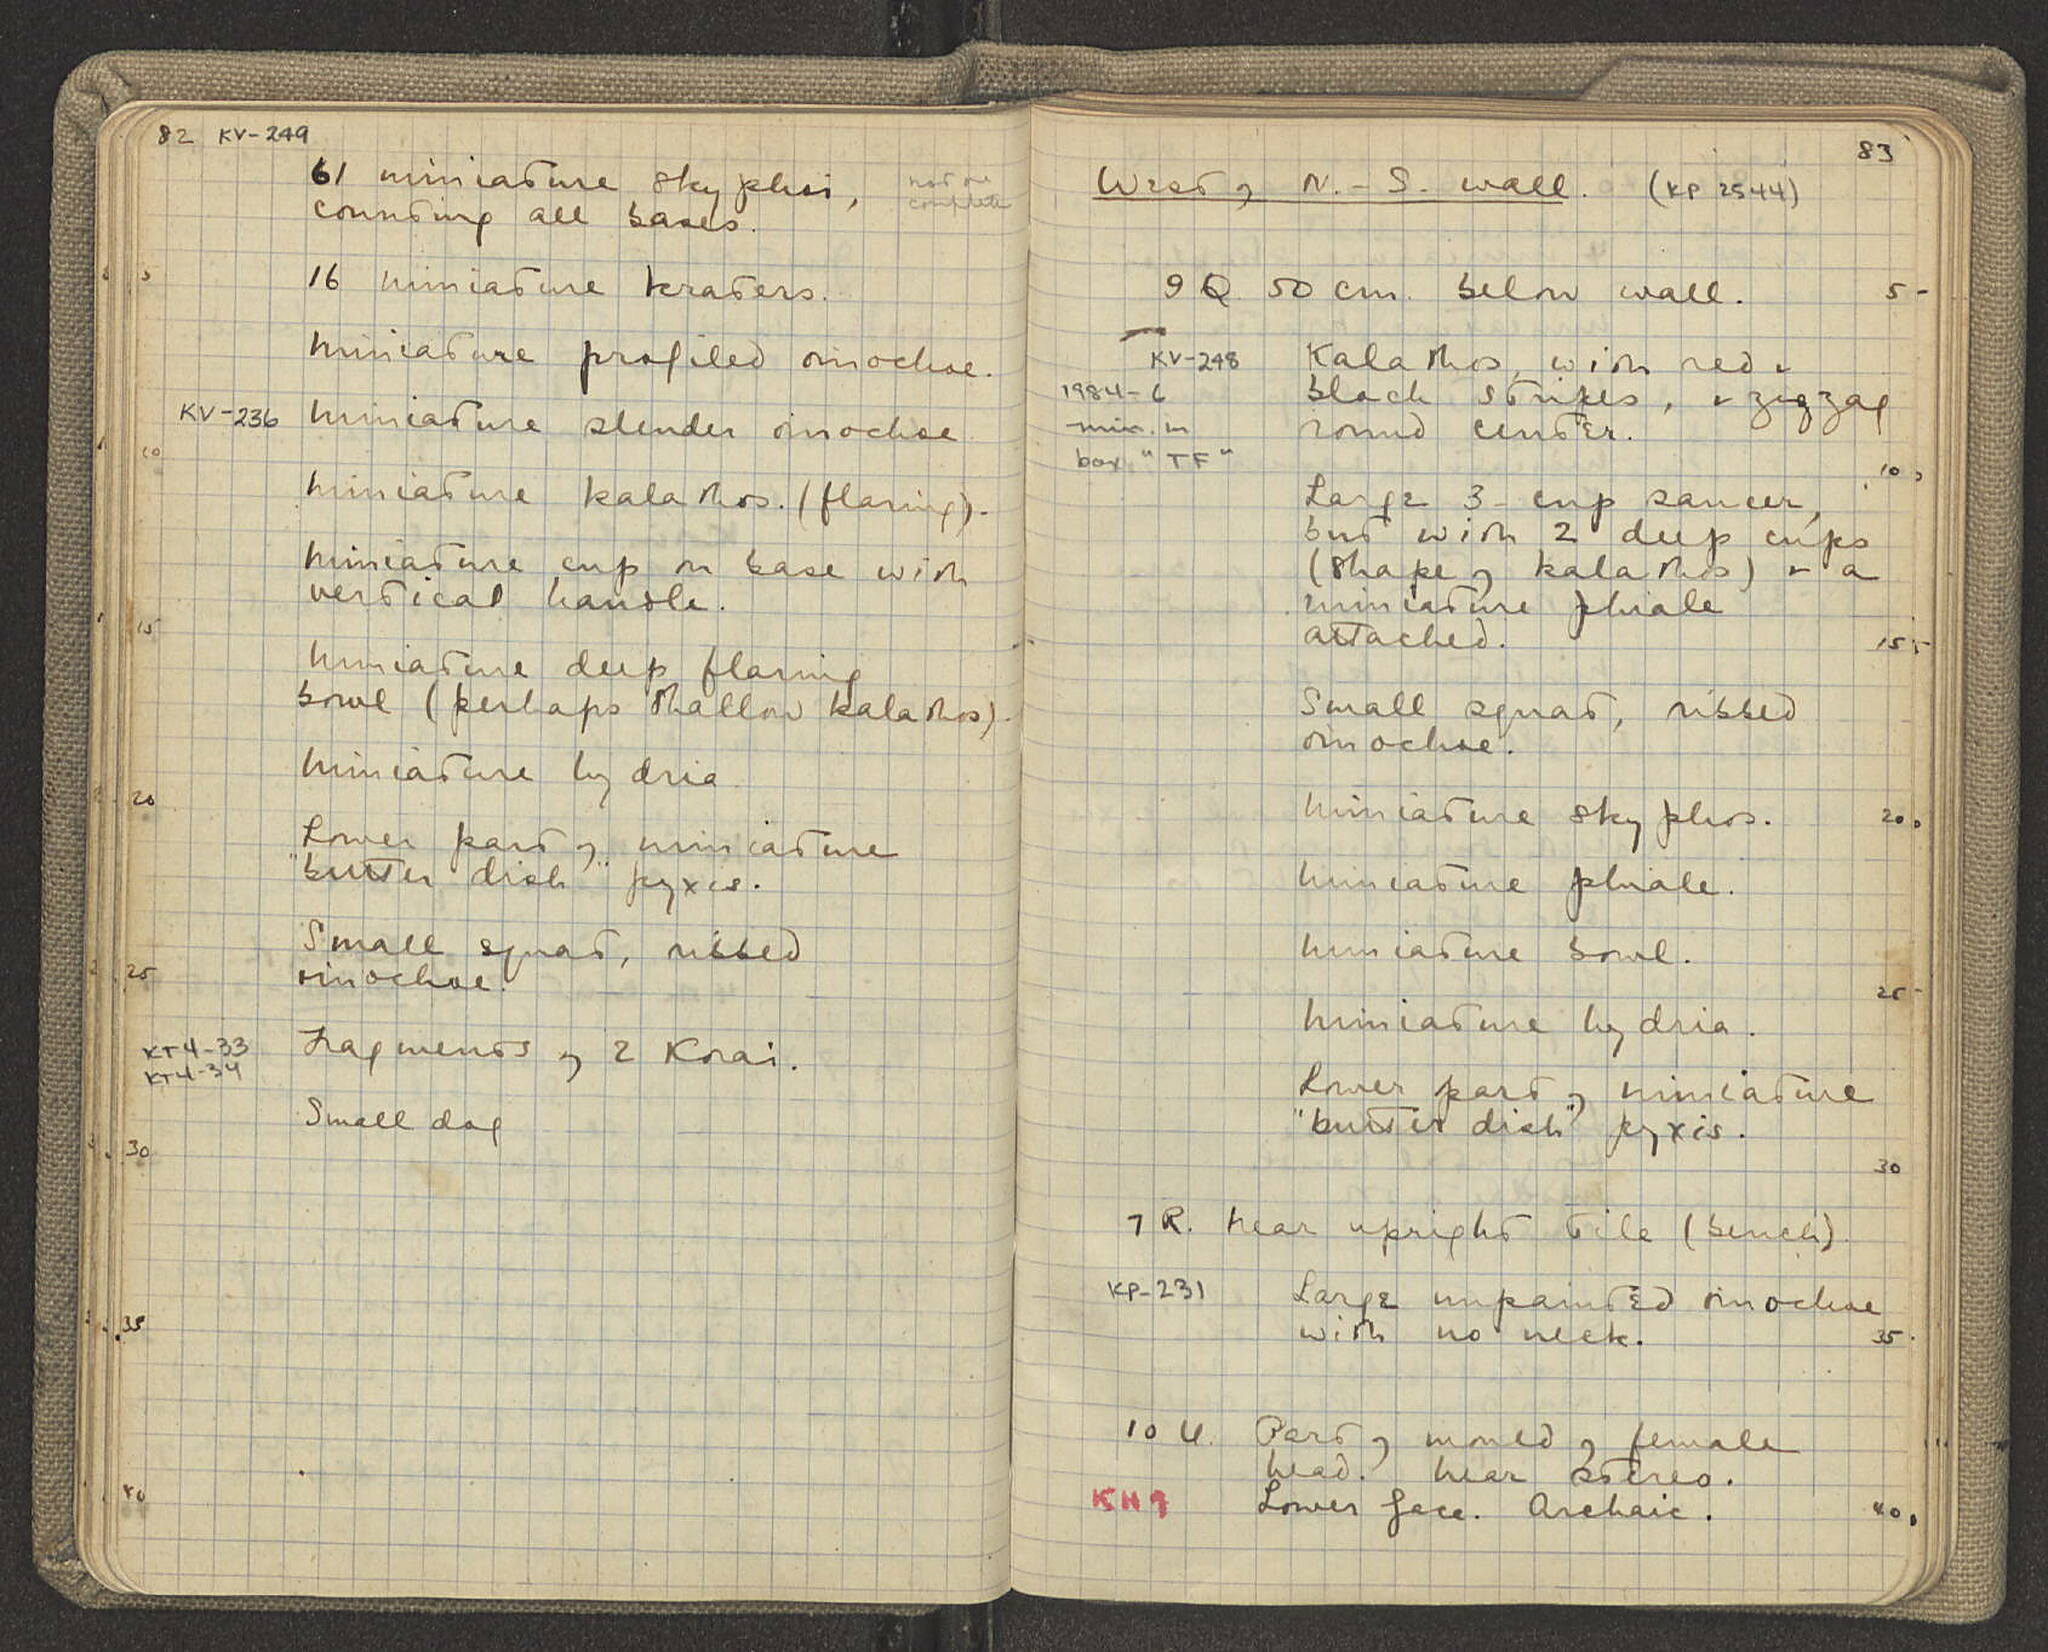 82 KV-249
61 miniature skyphoi, not one
counting all bases. complete
5
16 miniature kraters.
miniature profiled oinochoe.
KV-236 miniature slender oinochoe
10
miniature kalathos. (flaring).
miniature cup on base with
vertical handle.
15
miniature deep flaring
bowl (perhaps shallow kalathos).
miniature hydria
20
Lower part of miniature
"butter dish" pyxis.
Small squat, ribbed
25
oinochoe.
KT4-33 Fragments of 2 Korai.
KT4-34
Small dog
30
35
40
83
West of N.-S. wall. (KP 2544)
9 Q 50 cm. below wall. 5
KV-248 Kalathos, with red &
1984-6 black stripes, & zigzag
min. in round center.
box "TF"
10
Large 3-cup saucer,
but with 2 deep cups
(shape of kalathos) & a
miniature phiale
attached. 15
Small squat, ribbed
oinochoe.
miniature skyphos. 20
miniature phiale.
miniature bowl.
25
miniature hydria.
Lower part of miniature
"butter dish" pyxis.
30
7 R. near upright tile (bench).
KP-231 Large unpainted oinochoe
with no neck. 35
10 U. Part of mould of female
head. near stereo.
KH 9 Lower face. Archaic. 40